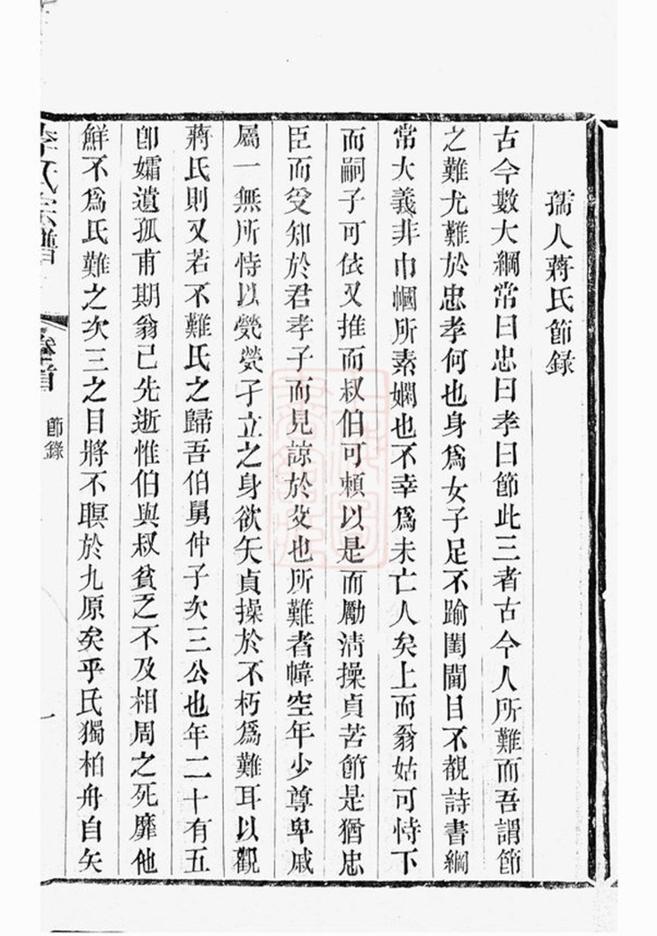 孺人蔣氏節錄
古今數大綱常曰忠曰孝曰節此三者古今人所難而吾謂節
之難尤難於忠孝何也身爲女子足不踰閨閫目不覩詩書綱
常大義非巾幗所素嫻也不幸爲未亡人矣上而翁姑可恃下
而嗣子可依又推而叔伯可賴以是而勵淸操貞苦節是猶忠
臣而受知於君孝子而見諒於父也所難者幃空年少尊卑戚
屬一無所恃以煢煢孑立之身欲矢貞操於不朽爲難耳以觀
蔣氏則又若不難氏之歸吾伯舅仲子次三公也年二十有五
卽孀遺孤甫期翁已先逝惟伯與叔貧乏不及相周之死靡他
鮮不爲氏難之次三之目將不瞑於九原矣乎氏獨柏舟自矢
李氏宗譜
卷首
節錄
一